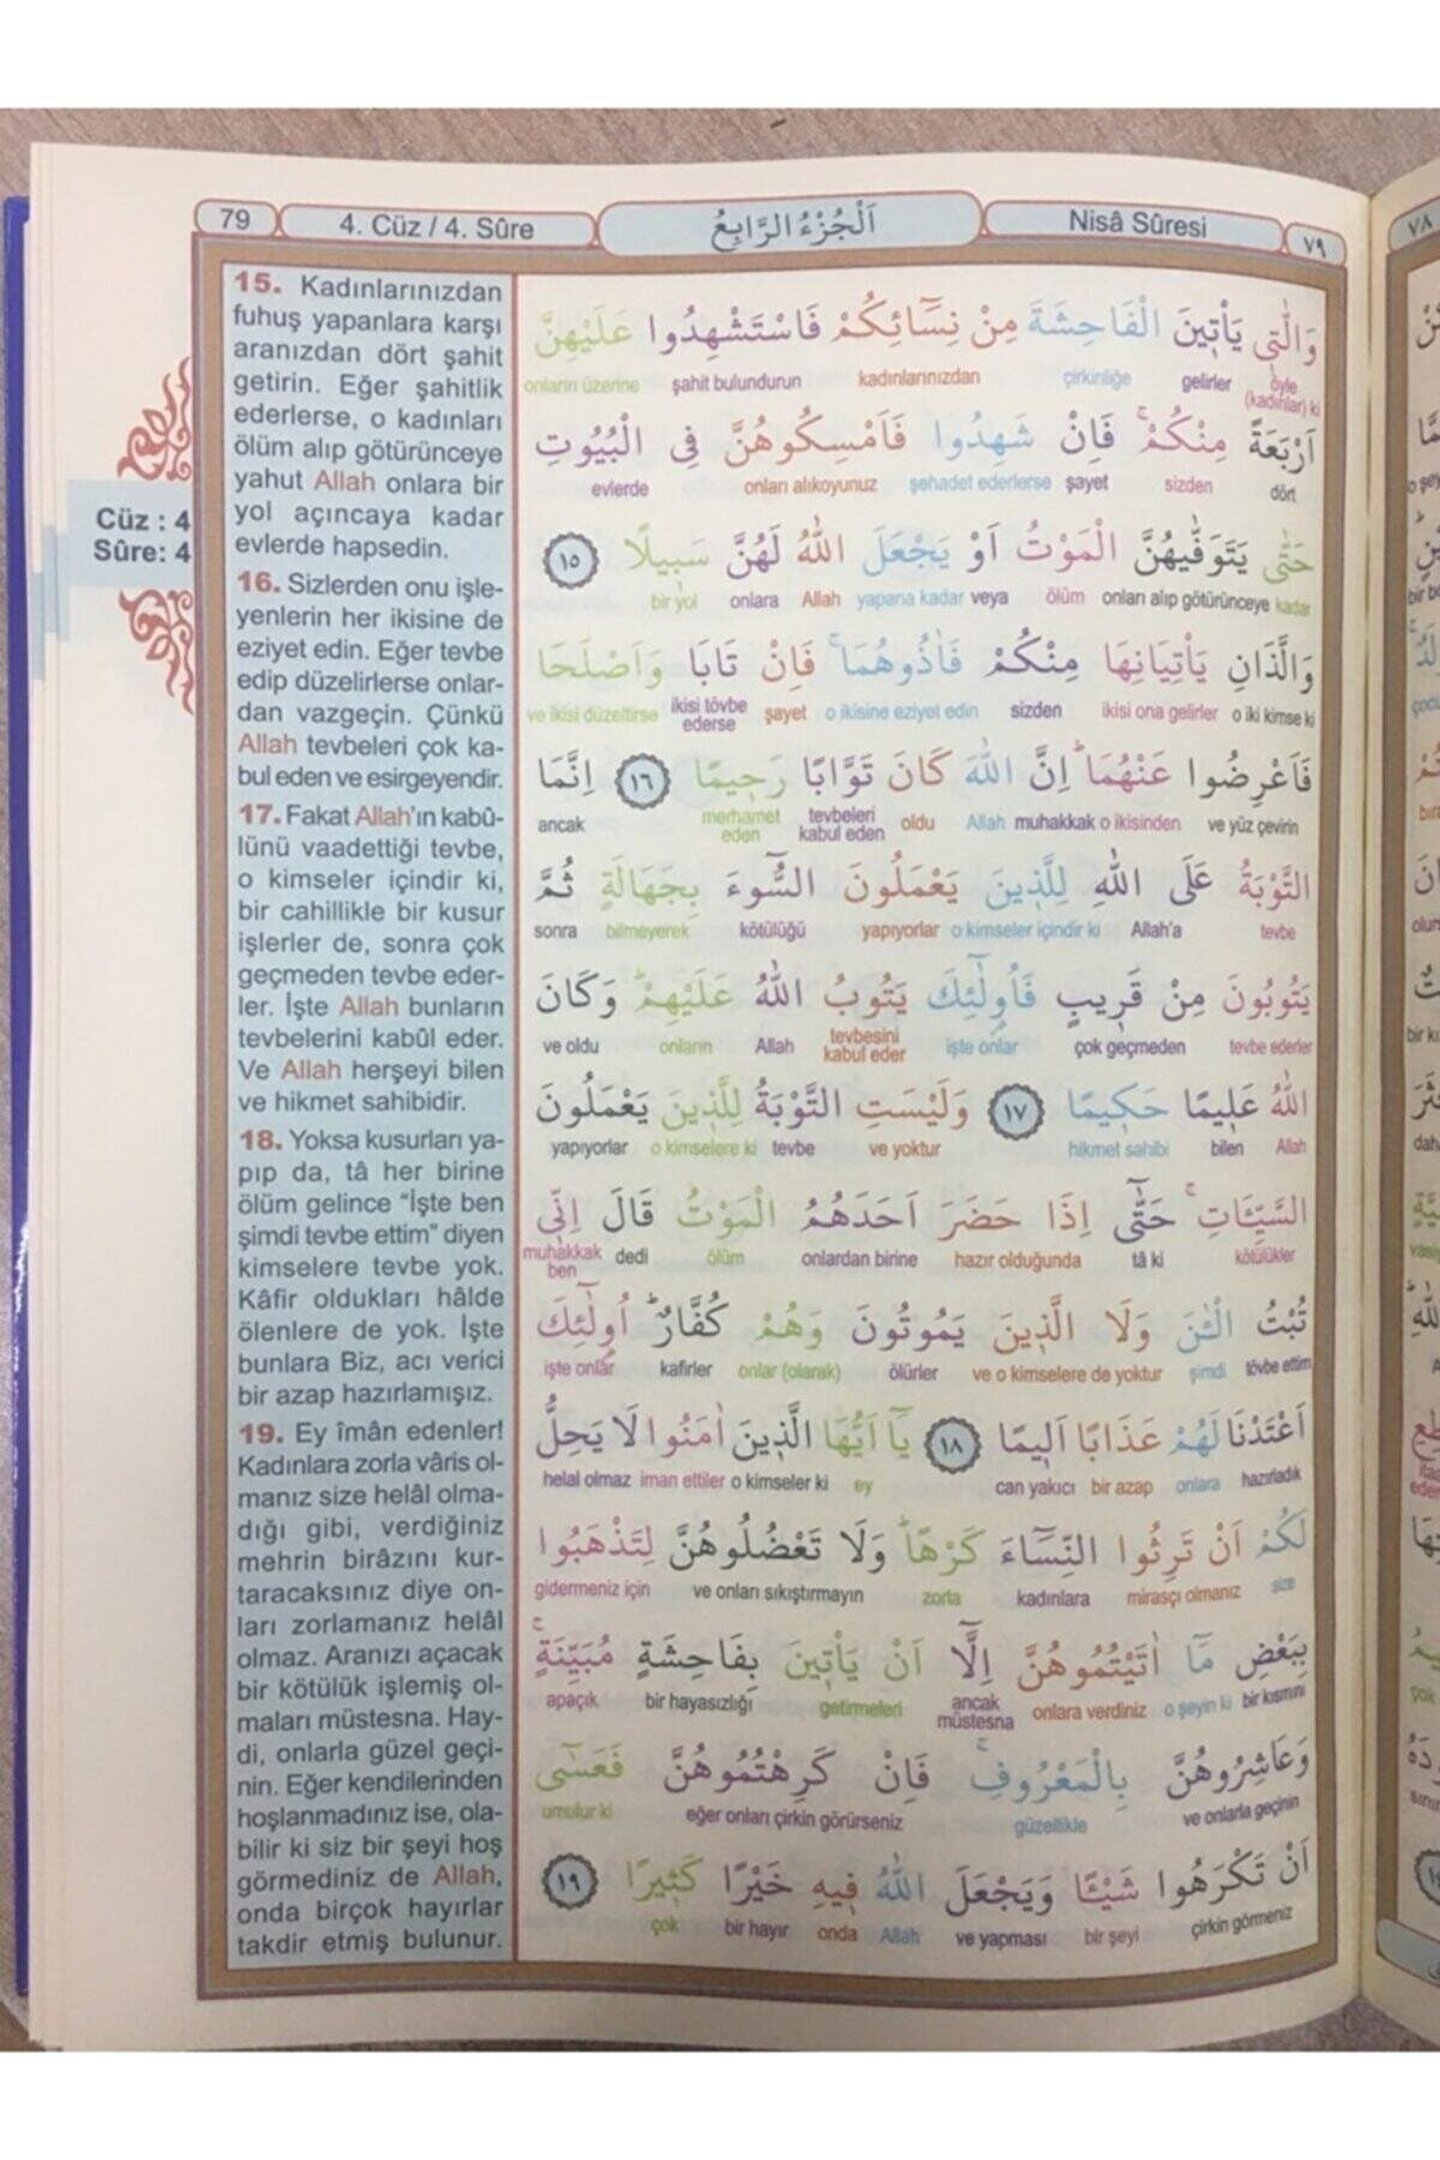 79
4. Cüz / 4. Sûre
اَلْجُزْءُ الرَّابِعُ
Nisâ Sûresi
٧٩
٧٨
Cüz : 4
Sûre: 4
15. Kadınlarınızdan
fuhuş yapanlara karşı
aranızdan dört şahit
getirin. Eğer şahitlik
ederlerse, o kadınları
ölüm alıp götürünceye
yahut Allah onlara bir
yol açıncaya kadar
evlerde hapsedin.
16. Sizlerden onu işle-
yenlerin her ikisine de
eziyet edin. Eğer tevbe
edip düzelirlerse onlar-
dan vazgeçin. Çünkü
Allah tevbeleri çok ka-
bul eden ve esirgeyendir.
17. Fakat Allah'ın kabû-
lünü vaadettiği tevbe,
o kimseler içindir ki,
bir cahillikle bir kusur
işlerler de, sonra çok
geçmeden tevbe eder-
ler. İşte Allah bunların
tevbelerini kabûl eder.
Ve Allah herşeyi bilen
ve hikmet sahibidir.
18. Yoksa kusurları ya-
pıp da, tâ her birine
ölüm gelince “İşte ben
şimdi tevbe ettim” diyen
kimselere tevbe yok.
Kâfir oldukları hâlde
ölenlere de yok. İşte
bunlara Biz, acı verici
bir azap hazırlamışız.
19. Ey îmân edenler!
Kadınlara zorla vâris ol-
manız size helâl olma-
dığı gibi, verdiğiniz
mehrin birâzını kur-
taracaksınız diye on-
ları zorlamanız helâl
olmaz. Aranızı açacak
bir kötülük işlemiş ol-
maları müstesna. Hay-
di, onlarla güzel geçi-
nin. Eğer kendilerinden
hoşlanmadınız ise, ola-
bilir ki siz bir şeyi hoş
görmediniz de Allah,
onda birçok hayırlar
takdir etmiş bulunur.
وَالّٰت۪ي يَأْت۪ينَ الْفَاحِشَةَ مِنْ نِسَٓائِكُمْ فَاسْتَشْهِدُوا عَلَيْهِنَّ
öyle (kadınlar) ki gelirler çirkinliğe kadınlarınızdan şahit bulundurun onların üzerine
اَرْبَعَةً مِنْكُمْۚ فَاِنْ شَهِدُوا فَاَمْسِكُوهُنَّ فِي الْبُيُوتِ
dört sizden şayet şehadet ederlerse onları alıkoyunuz evlerde
حَتّٰى يَتَوَفّٰيهُنَّ الْمَوْتُ اَوْ يَجْعَلَ اللّٰهُ لَهُنَّ سَب۪يلًا ١٥
kadar onları alıp götürünceye ölüm veya yapana kadar Allah onlara bir yol
وَالَّذَانِ يَأْتِيَانِهَا مِنْكُمْ فَاٰذُوهُمَاۚ فَاِنْ تَابَا وَاَصْلَحَا
o iki kimse ki ikisi ona gelirler sizden o ikisine eziyet edin şayet ikisi tövbe ederse ve ikisi düzeltirse
فَاَعْرِضُوا عَنْهُمَاۜ اِنَّ اللّٰهَ كَانَ تَوَّابًا رَح۪يمًا ١٦ اِنَّمَا
ve yüz çevirin o ikisinden muhakkak Allah oldu tevbeleri kabul eden merhamet eden ancak
التَّوْبَةُ عَلَى اللّٰهِ لِلَّذ۪ينَ يَعْمَلُونَ السُّٓوءَ بِجَهَالَةٍ ثُمَّ
tevbe Allah'a o kimseler içindir ki yapıyorlar kötülüğü bilmeyerek sonra
يَتُوبُونَ مِنْ قَر۪يبٍ فَاُو۬لٰٓئِكَ يَتُوبُ اللّٰهُ عَلَيْهِمْۜ وَكَانَ
tevbe ederler çok geçmeden işte onlar tevbesini kabul eder Allah onların ve oldu
اللّٰهُ عَل۪يمًا حَك۪يمًا ١٧ وَلَيْسَتِ التَّوْبَةُ لِلَّذ۪ينَ يَعْمَلُونَ
Allah bilen hikmet sahibi ve yoktur tevbe o kimselere ki yapıyorlar
السَّيِّـَٔاتِۚ حَتّٰٓى اِذَا حَضَرَ اَحَدَهُمُ الْمَوْتُ قَالَ اِنّ۪ي
kötülükler tâ ki hazır olduğunda onlardan birine ölüm dedi muhakkak ben
تُبْتُ الْـٰٔنَ وَلَا الَّذ۪ينَ يَمُوتُونَ وَهُمْ كُفَّارٌۜ اُو۬لٰٓئِكَ
tövbe ettim şimdi ve o kimselere de yoktur ölürler onlar (olarak) kafirler işte onlar
اَعْتَدْنَا لَهُمْ عَذَابًا اَل۪يمًا ١٨ يَٓا اَيُّهَا الَّذ۪ينَ اٰمَنُوا لَا يَحِلُّ
hazırladık onlara bir azap can yakıcı ey o kimseler ki iman ettiler helal olmaz
لَكُمْ اَنْ تَرِثُوا النِّسَٓاءَ كَرْهًاۜ وَلَا تَعْضُلُوهُنَّ لِتَذْهَبُوا
size mirasçı olmanız kadınlara zorla ve onları sıkıştırmayın gidermeniz için
بِبَعْضِ مَٓا اٰتَيْتُمُوهُنَّ اِلَّٓا اَنْ يَأْت۪ينَ بِفَاحِشَةٍ مُبَيِّنَةٍۚ
bir kısmını o şeyin ki onlara verdiniz ancak müstesna getirmeleri bir hayasızlığı apaçık
وَعَاشِرُوهُنَّ بِالْمَعْرُوفِۚ فَاِنْ كَرِهْتُمُوهُنَّ فَعَسٰٓى
ve onlarla geçinin güzellikle eğer onları çirkin görürseniz umulur ki
اَنْ تَكْرَهُوا شَيْـًٔا وَيَجْعَلَ اللّٰهُ ف۪يهِ خَيْرًا كَث۪يرًا ١٩
çirkin görmeniz bir şeyi ve yapması Allah onda bir hayır çok